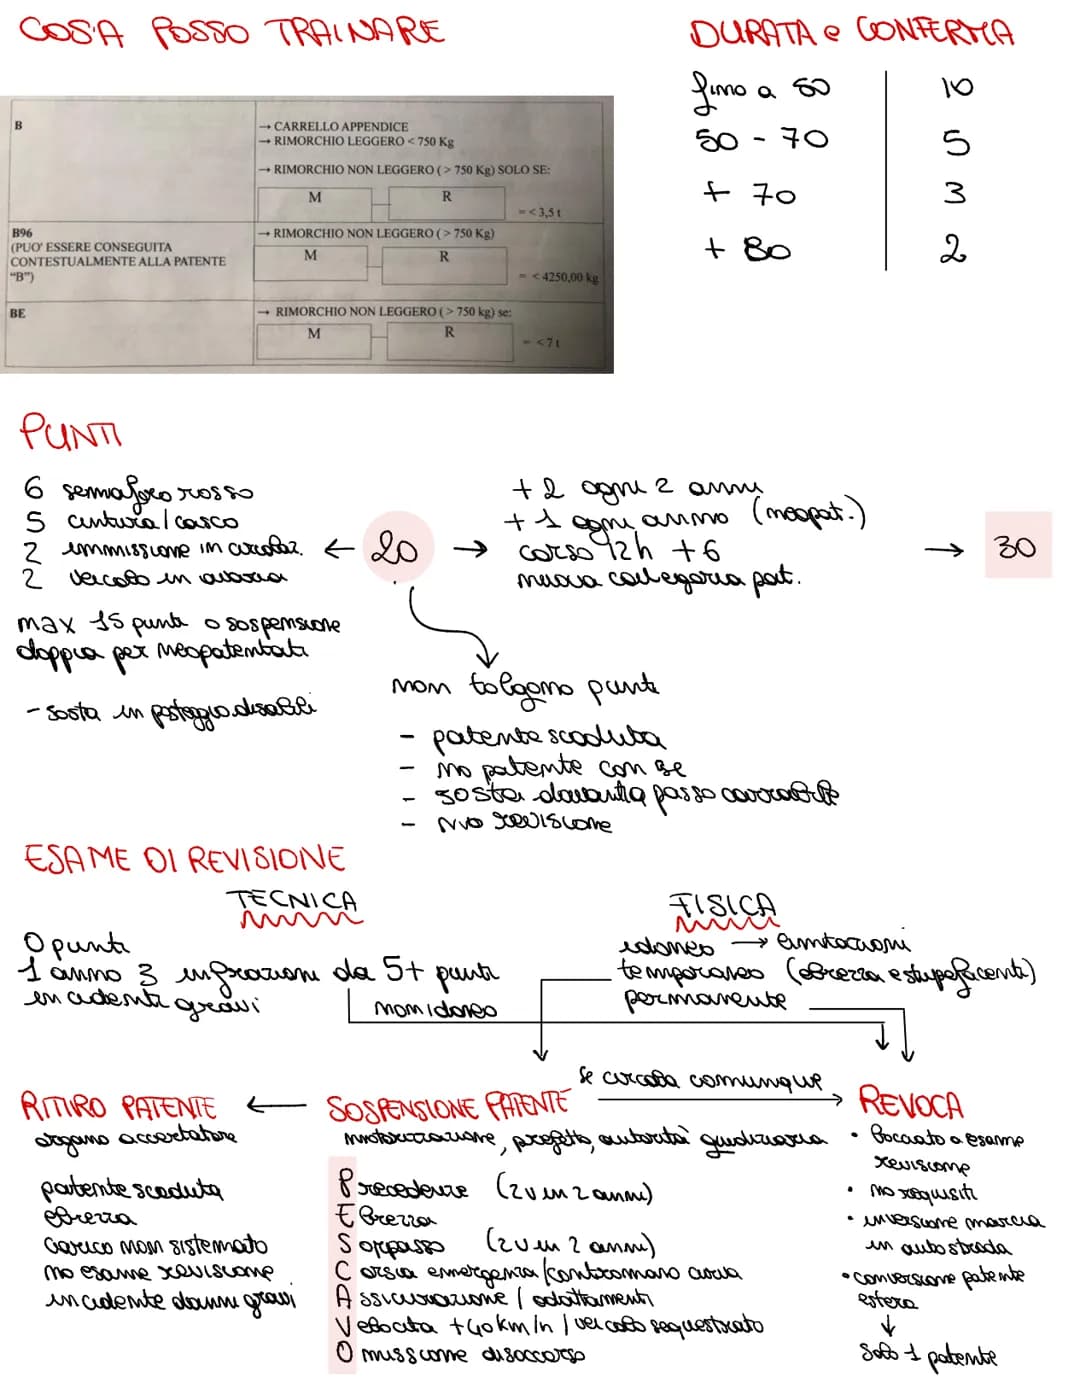 COSA POSSO TRAINARE
B
→ CARRELLO APPENDICE
→ RIMORCHIO LEGGERO < 750 Kg
→ RIMORCHIO NON LEGGERO (> 750 Kg) SOLO SE:
M R
= < 3,5 t
B96
(PUO' ESSERE CONSEGUITA
CONTESTUALMENTE ALLA PATENTE
"B")
→ RIMORCHIO NON LEGGERO (> 750 Kg)
M R
= < 4250,00 kg
BE
→ RIMORCHIO NON LEGGERO (> 750 kg) se:
M R
= < 7 t
DURATA e CONFERMA
fino a 50 10
50 - 70 5
+ 70 3
+ 80 2
PUNTI
6 semaforo rosso
5 cintura / casco
2 immissione in circolaz.
2 veicolo in avaria
max 15 punti o sospensione
doppia per neopatentati
- sosta in posteggio disabili
← 20 →
+ 2 ogni 2 anni
+ 1 ogni anno (neopat.)
corso 12h + 6
nuova categoria pat.
→ 30
non tolgono punti
- patente scaduta
- no patente con se
- sosta davanti a passo carrabile
- no revisione
ESAME DI REVISIONE
TECNICA
0 punti
1 anno 3 infrazioni da 5+ punti
incidenti gravi
non idoneo
FISICA
idoneo → limitazioni
temporaneo (ebrezza e stupefacenti)
permanente
RITIRO PATENTE ←
organo accertatore
patente scaduta
ebrezza
carico non sistemato
no esame revisione
incidente danni gravi
SOSPENSIONE PATENTE
motorizzazione, prefetto, autorità giudiziaria
Precedenze (2v in 2 anni)
Ebrezza
Sorpasso (2v in 2 anni)
Corsia emergenza / contromano curva
Assicurazione / adattamenti
Velocita +40 km/h / veicolo sequestrato
Omissione di soccorso
se circola comunque →
REVOCA
• bocciato a esame
revisione
• no requisiti
• inversione marcia
in autostrada
• conversione patente
estera
↓
Solo 1 patente